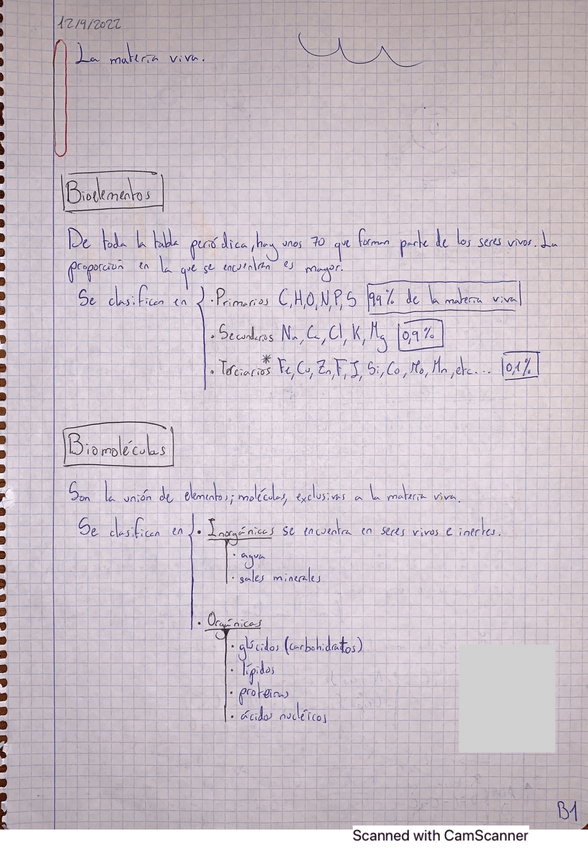 12/9/2022
La materia viva.
Bioelementos
De toda la tabla periódica, hay unos 70 que forman parte de los seres vivos. La
proporción en la que se encuentran es mayor.
Se clasifican en { · Primarios C, H, O, N, P, S 99% de la materia viva
· Secundarios Na, Ca, Cl, K, Mg 0,9%
· Terciarios* Fe, Cu, Zn, F, I, Si, Co, Mo, Mn, etc... 0,1%
Biomoléculas
Son la unión de elementos; moléculas, exclusivas a la materia viva.
Se clasifican en { · Inorgánicas se encuentra en seres vivos e inertes.
· agua
· sales minerales
· Orgánicas
· glúcidos (carbohidratos)
· lípidos
· proteínas
· ácidos nucléicos
B1
Scanned with CamScanner